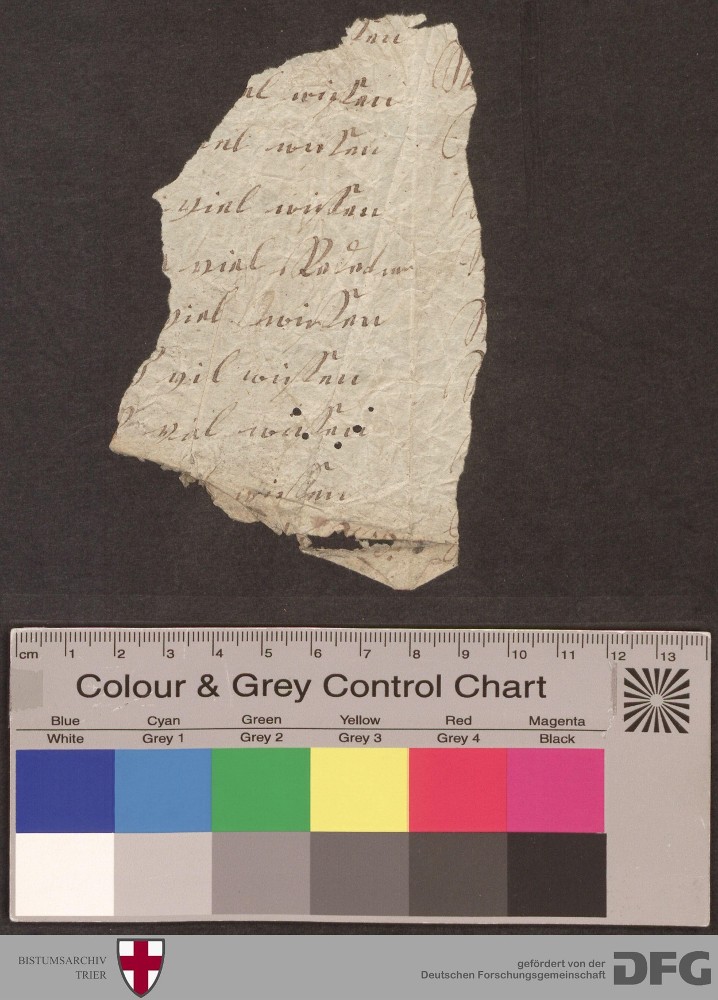 sen
el wissen
iel wissen
viel wissen
viel
viel wissen
vil wissen
viel wissen
wissen
cm 1 2 3 4 5 6 7 8 9 10 11 12 13
Colour & Grey Control Chart
Blue Cyan Green Yellow Red Magenta
White Grey 1 Grey 2 Grey 3 Grey 4 Black
BISTUMSARCHIV
TRIER
gefördert von der
Deutschen Forschungsgemeinschaft
DFG